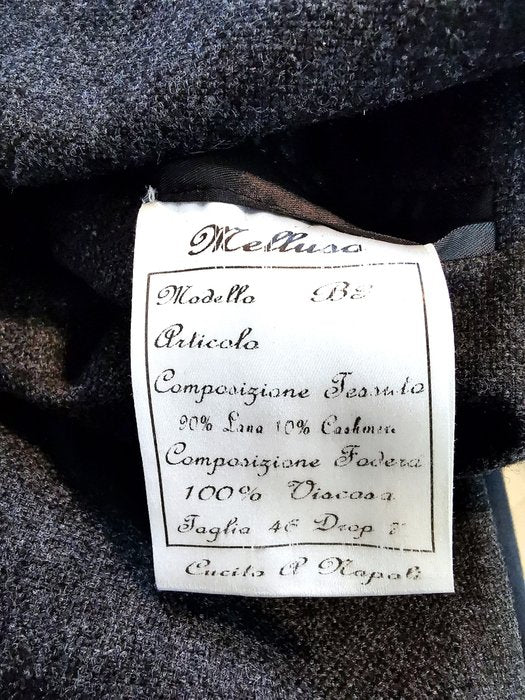 Melluso
Modello
Articolo
Composizione Tessuto
90% Lana 10% Cashmere
Composizione Fodera
100% Viscosa
Taglia 46 Drop 7
Cucito A Napoli